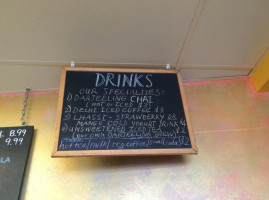 DRINKS
OUR SPECIALTIES:
1) DARJEELING CHAI
(hot or ICED $3)
2) DELHI ICED COFFEE $3
3) LHASSI - STRAWBERRY $3
MANGO COLD YOGURT DRINK
4) UNSWEETENED ICED TEA $2
(our own DARJEELING
hot tea/milk/reg coffee/
8.99
9.99
LA